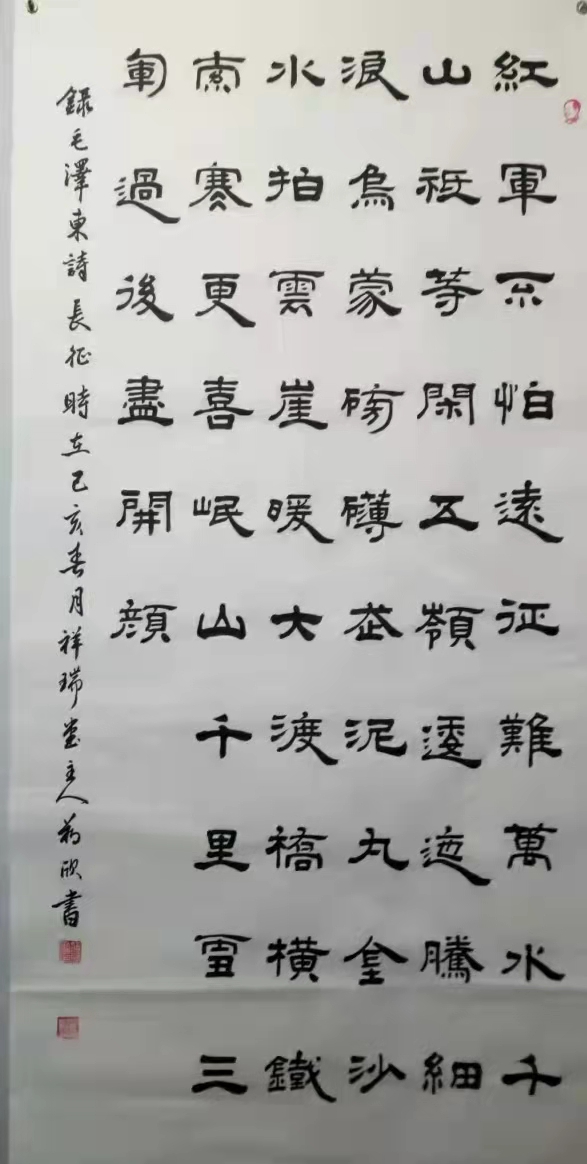 紅軍不怕遠征難萬水千
山祇等閑五嶺逶迤騰細
浪烏蒙磅礴走泥丸金沙
水拍雲崖暖大渡橋橫鐵
索寒更喜岷山千里雪三
軍過後盡開顏
錄毛澤東詩長征時在己亥春月祥瑞堂主人欣書